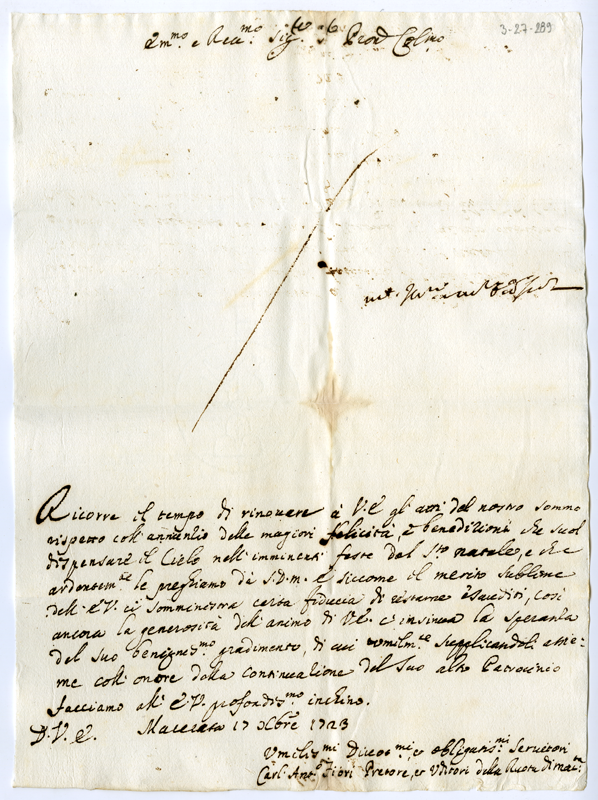 3-27-289
Emo e Revmo Sigre Pron Colmo
Ricorre il tempo di rinovare à V.E. gli atti del nostro sommo
rispetto coll'annunzio delle magiori felicità, e benedizioni che suol
dispensare il Cielo nell'imminenti feste del Sto natale, e che
ardentemte le preghiamo da S.D.M. e siccome il merito sublime
dell'E.V. ci somministra certa fiducia di restarne esauditi, così
ancora la generosità dell'animo di V.E. c'insinua la speranza
del suo benignismo gradimento, di cui umilmte supplicandola assie=
me coll'onore della continuazione del suo alto Patrocinio
facciamo all'E.V. profondismo inchino.
D.V.E. Macerata 17 Xbre 1723
Umilismi Divotmi, et obligatismi Servitori
Carl'Anto Fiori Pretore, et Uditori della Ruota di Macta